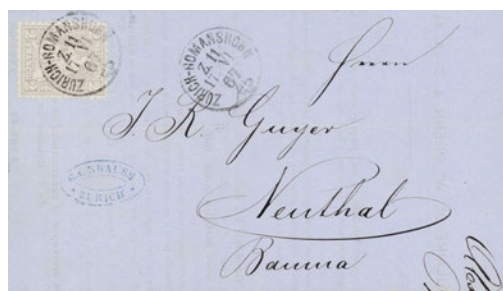 ZÜRICH-ROMANSHORN
Z.11
17 VI
67
ZÜRICH-ROMANSHORN
Z.11
17 VI
67
Herrn
J. R. Guyer
ZÜRICH
Neuthal
Bauma